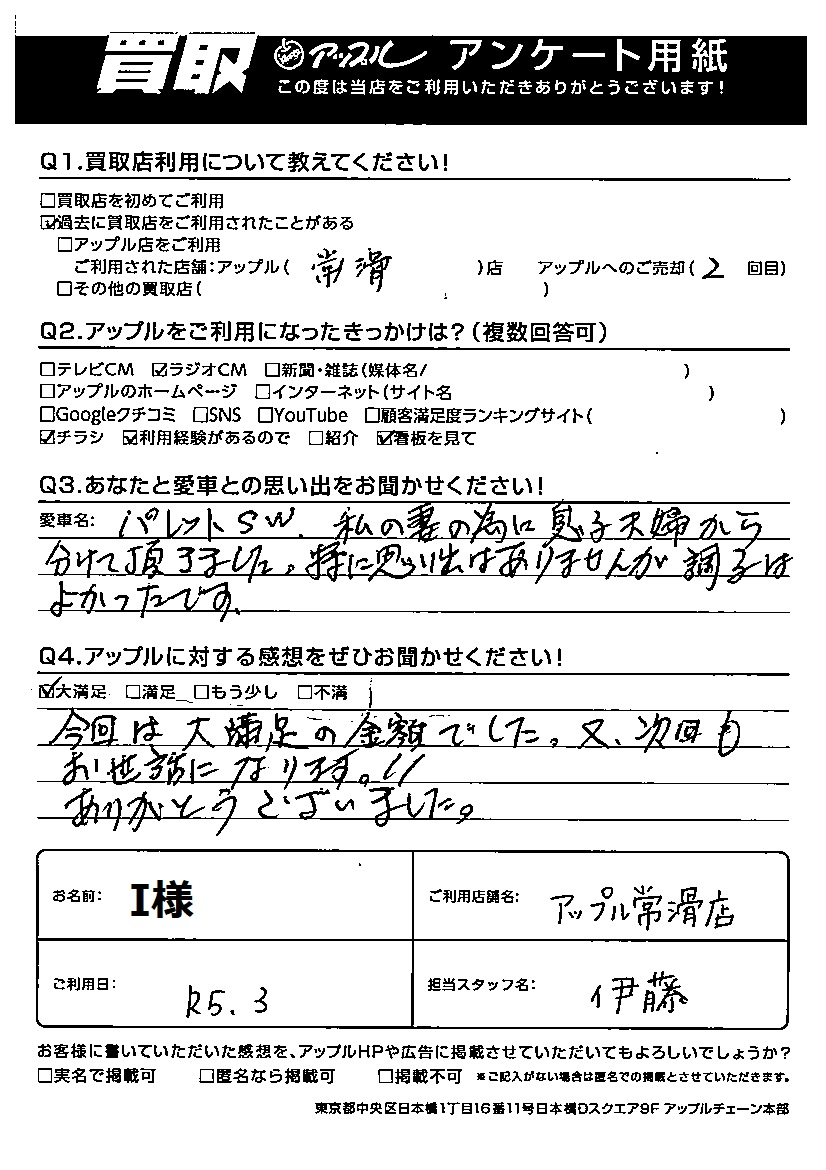 買取 アップル アンケート用紙
この度は当店をご利用いただきありがとうございます!
Q1.買取店利用について教えてください!
□買取店を初めてご利用
☑過去に買取店をご利用されたことがある
□アップル店をご利用
ご利用された店舗:アップル( 常滑 )店 アップルへのご売却( 2 回目)
□その他の買取店( )
Q2.アップルをご利用になったきっかけは?(複数回答可)
□テレビCM ☑ラジオCM □新聞・雑誌(媒体名/ )
□アップルのホームページ □インターネット(サイト名 )
□Googleクチコミ □SNS □YouTube □顧客満足度ランキングサイト( )
☑チラシ ☑利用経験があるので □紹介 ☑看板を見て
Q3.あなたと愛車との思い出をお聞かせください!
愛車名: パレットSW. 私の妻の為に息子夫婦から
分けて頂きました。特に思い出はありませんが調子は
よかったです。
Q4.アップルに対する感想をぜひお聞かせください!
☑大満足 □満足 □もう少し □不満
今回は大満足の金額でした。又、次回も
お世話になります。!!
ありがとうございました。
お名前: I様 ご利用店舗名: アップル常滑店
ご利用日: R5.3 担当スタッフ名: 伊藤
お客様に書いていただいた感想を、アップルHPや広告に掲載させていただいてもよろしいでしょうか?
□実名で掲載可 □匿名なら掲載可 □掲載不可 *ご記入がない場合は匿名での掲載とさせていただきます。
東京都中央区日本橋1丁目16番11号日本橋Dスクエア9F アップルチェーン本部